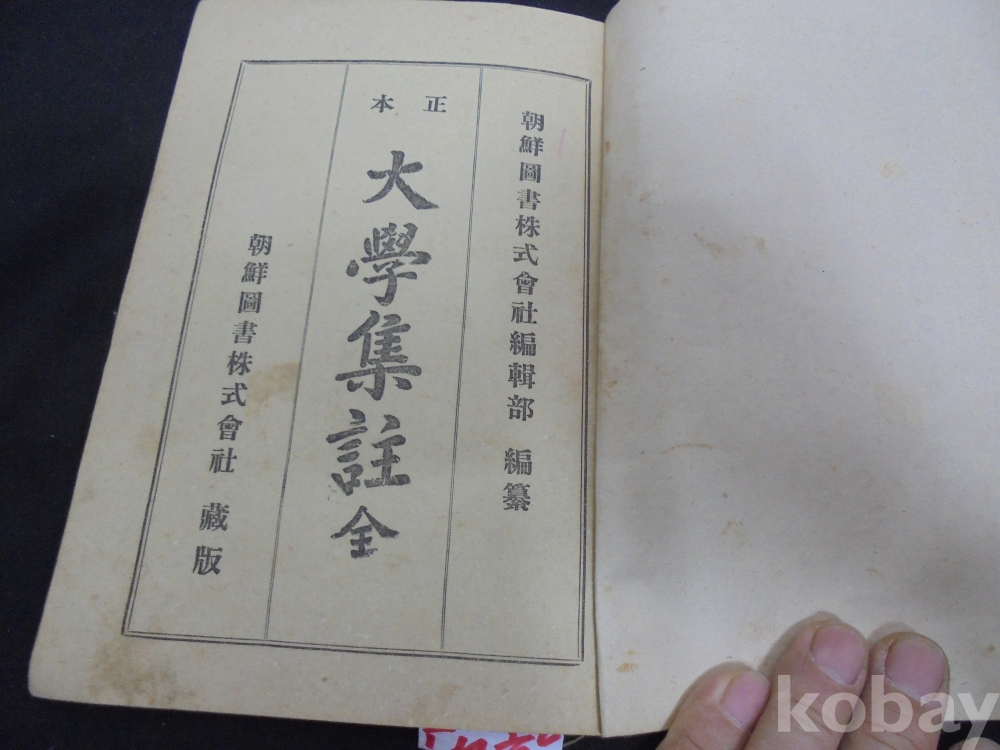 朝鮮圖書株式會社編輯部 編纂
正本
大學集註全
朝鮮圖書株式會社 藏版
kobay